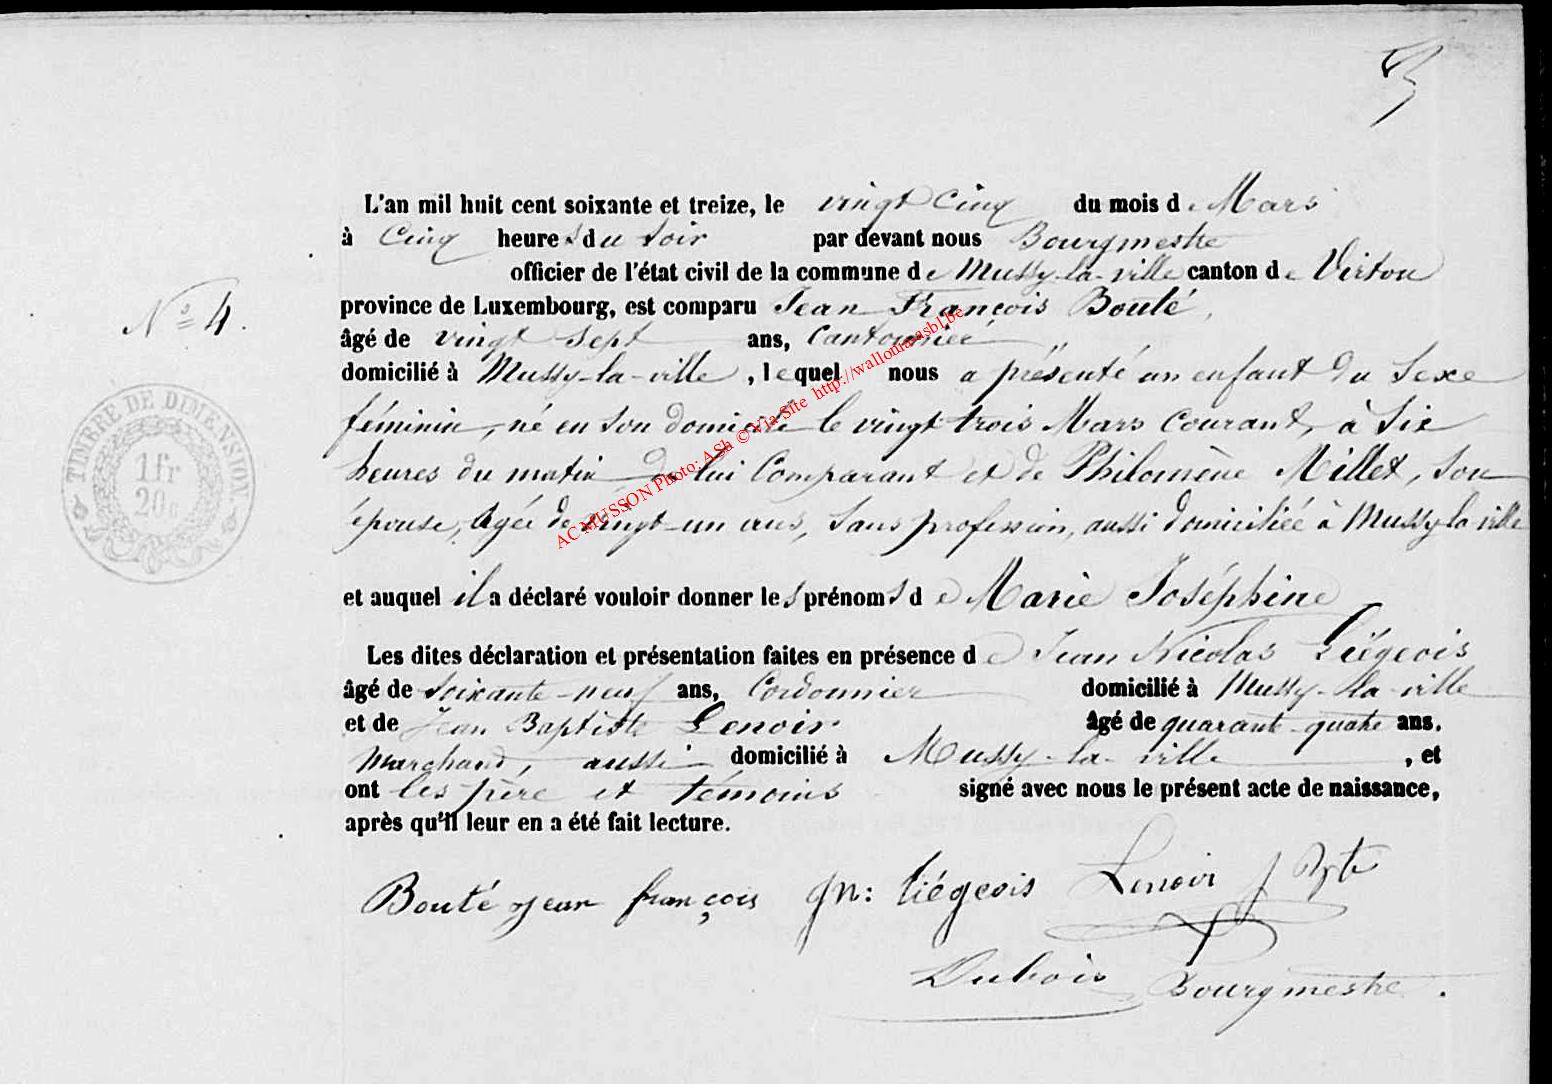 3
L'an mil huit cent soixante et treize, le vingt cinq du mois de Mars
à Cinq heures du soir par devant nous Bourgmestre
officier de l'état civil de la commune de Mussy-la-ville canton de Virton
N° 4.
province de Luxembourg, est comparu Jean François Bouté,
âgé de vingt sept ans, Cantonnier
domicilié à Mussy-la-ville, lequel nous a présenté un enfant du Sexe
féminin, né en son domicile le vingt trois Mars courant, à Six
heures du matin de lui Comparant et de Philomène Millet, son
épouse, Agée de vingt-un ans, Sans profession, aussi domiciliée à Mussy la ville
TIMBRE DE DIMENSION.
1 fr
20 c
AC MUSSON Photo: ASh © Via Site http://wallonia-asbl.be
et auquel il a déclaré vouloir donner les prénoms de Marie Joséphine
Les dites déclaration et présentation faites en présence de Jean Nicolas Liégeois
âgé de soixante-neuf ans, Cordonnier domicilié à Mussy-la-ville
et de Jean Baptiste Lenoir âgé de quarante-quatre ans.
Marchand, aussi domicilié à Mussy-la-ville, et
ont les père et témoins signé avec nous le présent acte de naissance,
après qu'il leur en a été fait lecture.
Bouté jean françois Jn: Liégeois Lenoir J Bpte
Dubois Bourgmestre.